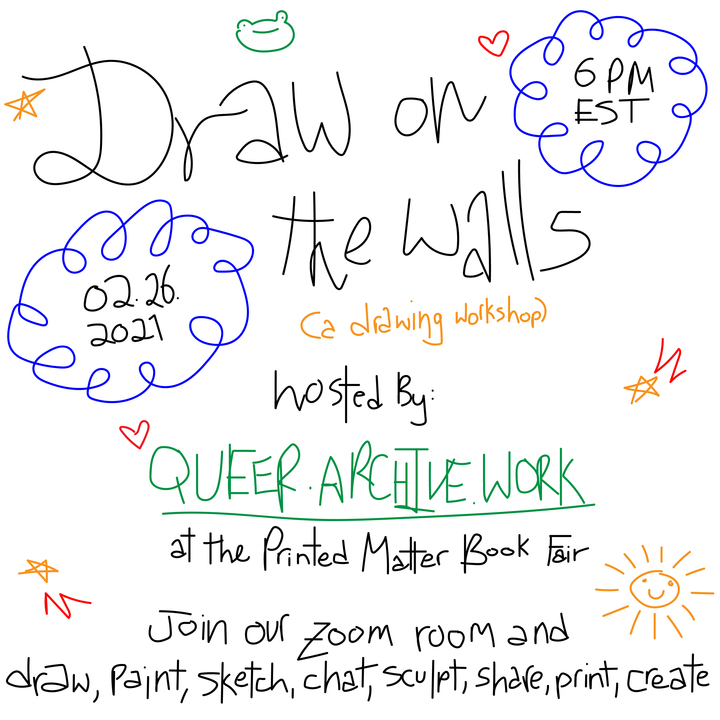 Draw on
6 PM
EST
the walls
02.26.
2021
(a drawing workshop)
hosted By:
QUEER.ARCHIVE.WORK
at the Printed Matter Book Fair
Join our zoom room and
draw, paint, sketch, chat, sculpt, share, print, create